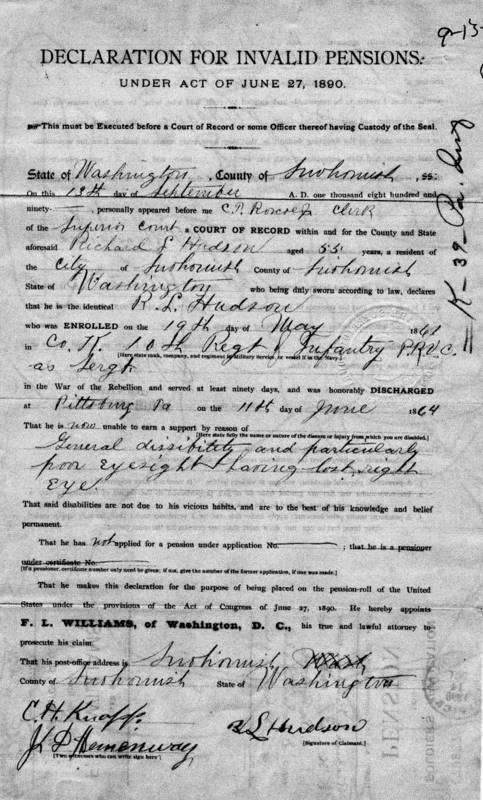 9-15
DECLARATION FOR INVALID PENSIONS.
UNDER ACT OF JUNE 27, 1890.
This must be Executed before a Court of Record or some Officer thereof having Custody of the Seal.
State of Washington, County of Snohomish, ss:
On this 12th day of September A. D. one thousand eight hundred and
ninety-, personally appeared before me C. P. Roscoe Clerk
of the Superior Court, a COURT OF RECORD within and for the County and State
aforesaid Richard L Hudson aged 55 years, a resident of
the City of Snohomish County of Snohomish
State of Washington who being duly sworn according to law, declares
that he is the identical R. L. Hudson
who was ENROLLED on the 19th day of May 1861
in Co. K. 10th Regt of Infantry P.R.V.C.
[Here state rank, company, and regiment in military service, or vessel if in the Navy.]
as Sergt
in the War of the Rebellion and served at least ninety days, and was honorably DISCHARGED
at Pittsburg Pa on the 11th day of June 1864
That he is now unable to earn a support by reason of
[Here state fully the name or nature of the disease or injury from which you are disabled.]
General dissibility and particularly
poor Eyesight having lost right
Eye.
That said disabilities are not due to his vicious habits, and are to the best of his knowledge and belief
permanent.
That he has not applied for a pension under application No. ; that he is a pensioner
under certificate No.
[If a pensioner, certificate number only need be given; if not, give the number of the former application, if one was made.]
That he makes this declaration for the purpose of being placed on the pension-roll of the United
States under the provisions of the Act of Congress of June 27, 1890. He hereby appoints
F. L. WILLIAMS, of Washington, D. C., his true and lawful attorney to
prosecute his claim.
That his post-office address is Snohomish Wash
County of Snohomish State of Washington
C. H. Knapp
R L Hudson
[Signature of Claimant.]
J. P. Hemenway
[Two witnesses who can write sign here]
K-39-Pa.
PENSION